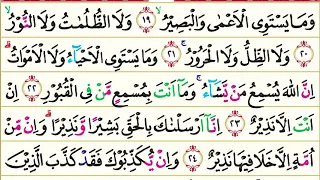 وَمَا يَسْتَوِى الْاَعْمٰى وَالْبَصِيْرُ ۙ ﴿۱۹﴾ وَلَا الظُّلُمٰتُ وَلَا النُّوْرُ ۙ
﴿۲۰﴾ وَلَا الظِّلُّ وَلَا الْحَرُوْرُ ۚ ﴿۲۱﴾ وَمَا يَسْتَوِى الْاَحْيَآءُ وَلَا الْاَمْوَاتُ ؕ
اِنَّ اللّٰهَ يُسْمِعُ مَنْ يَّشَآءُ ۚ وَمَاۤ اَنْتَ بِمُسْمِعٍ مَّنْ فِى الْقُبُوْرِ ﴿۲۲﴾ اِنْ
اَنْتَ اِلَّا نَذِيْرٌ ﴿۲۳﴾ اِنَّاۤ اَرْسَلْنٰكَ بِالْحَقِّ بَشِيْرًا وَّنَذِيْرًا ؕ وَاِنْ مِّنْ
اُمَّةٍ اِلَّا خَلَا فِيْهَا نَذِيْرٌ ﴿۲۴﴾ وَاِنْ يُّكَذِّبُوْكَ فَقَدْ كَذَّبَ الَّذِيْنَ